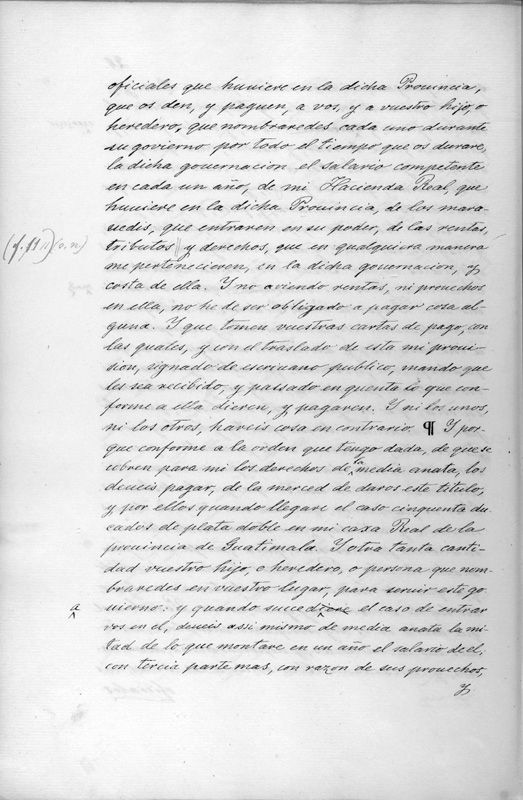 oficiales que huuiere en la dicha Prouincia,
que os den, y paguen, a vos, y a vuestro hijo, o
heredero, que nombraredes cada uno durante
su govierno por todo el tiempo que os durare,
la dicha gouernacion el salario competente
en cada un año, de mi Hacienda Real, que
huuiere en la dicha Prouincia, de los mara-
uedis, que entraren en su poder, de las rentas,
(f. 11 || (o. n.)
tributos || y derechos, que en qualquiera manera
me pertenecieren, en la dicha gouernacion, y
costa de ella. Y no aviendo rentas, ni prouechos
en ella, no he de ser obligado a pagar cosa al-
guna. Y que tomen vuestras cartas de pago, con
las quales, y con el traslado de esta mi proui-
sion, signado de escriuano publico, mando que
les sea recibido, y passado en quenta lo que con-
forme a ella dieren, y pagaren. Y ni los unos,
ni los otros, hareis cosa en contrario. ¶ Y por-
que conforme a la orden que tengo dada, de que se
cobren para mi los derechos de la media anata, los
deueis pagar, de la merced de daros este titulo,
y por ellos quando llegare el caso cinquenta du-
cados de plata doble en mi caxa Real de la
prouincia de Guatimala. Y otra tanta canti-
dad vuestro hijo, o heredero, o persona que nom-
braredes en vuestro lugar, para seruir este go-
a
uierno: y quando succed el caso de entrar
vos en el, deueis assi mismo de media anata la mi-
tad de lo que montare en un año el salario de el,
con tercia parte mas, con razon de sus prouechos,
y